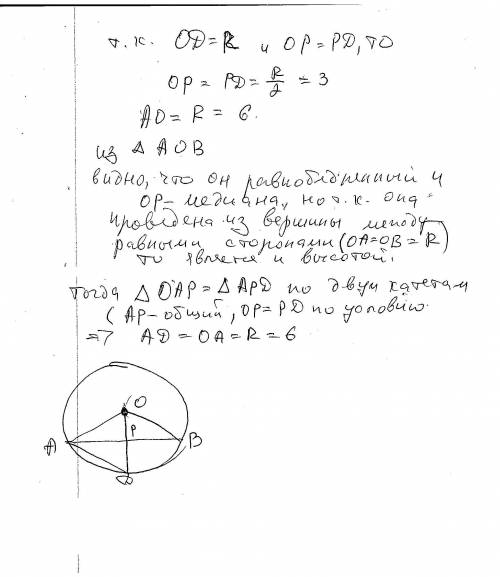 т.к. OD=R и OP=PD, то
OP = PD = R/2 = 3
AO = R = 6.
из △ AOB
видно, что он равнобедренный и
OP – медиана, но т.к. она
проведена из вершины между
равными сторонами (OA=OB=R)
то является и высотой.
тогда △ OAP = △ APD по двум катетам
(AP-общий, OP=PD по условию
=> AD = OA = R = 6
O
A P B
D